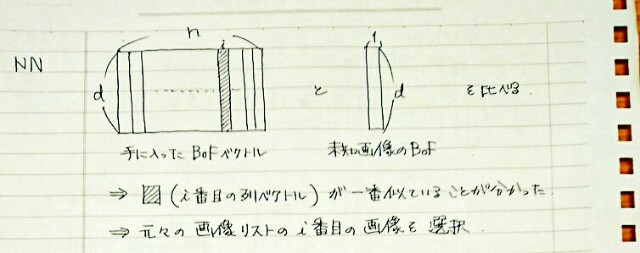 n
i 1
NN d と d を比べる.
手に入ったBoFベクトル 未知画像のBoF
⇒ ▨ (i番目の列ベクトル) が一番似ていることが分かった.
⇒ 元々の画像リストのi番目の画像を選択.